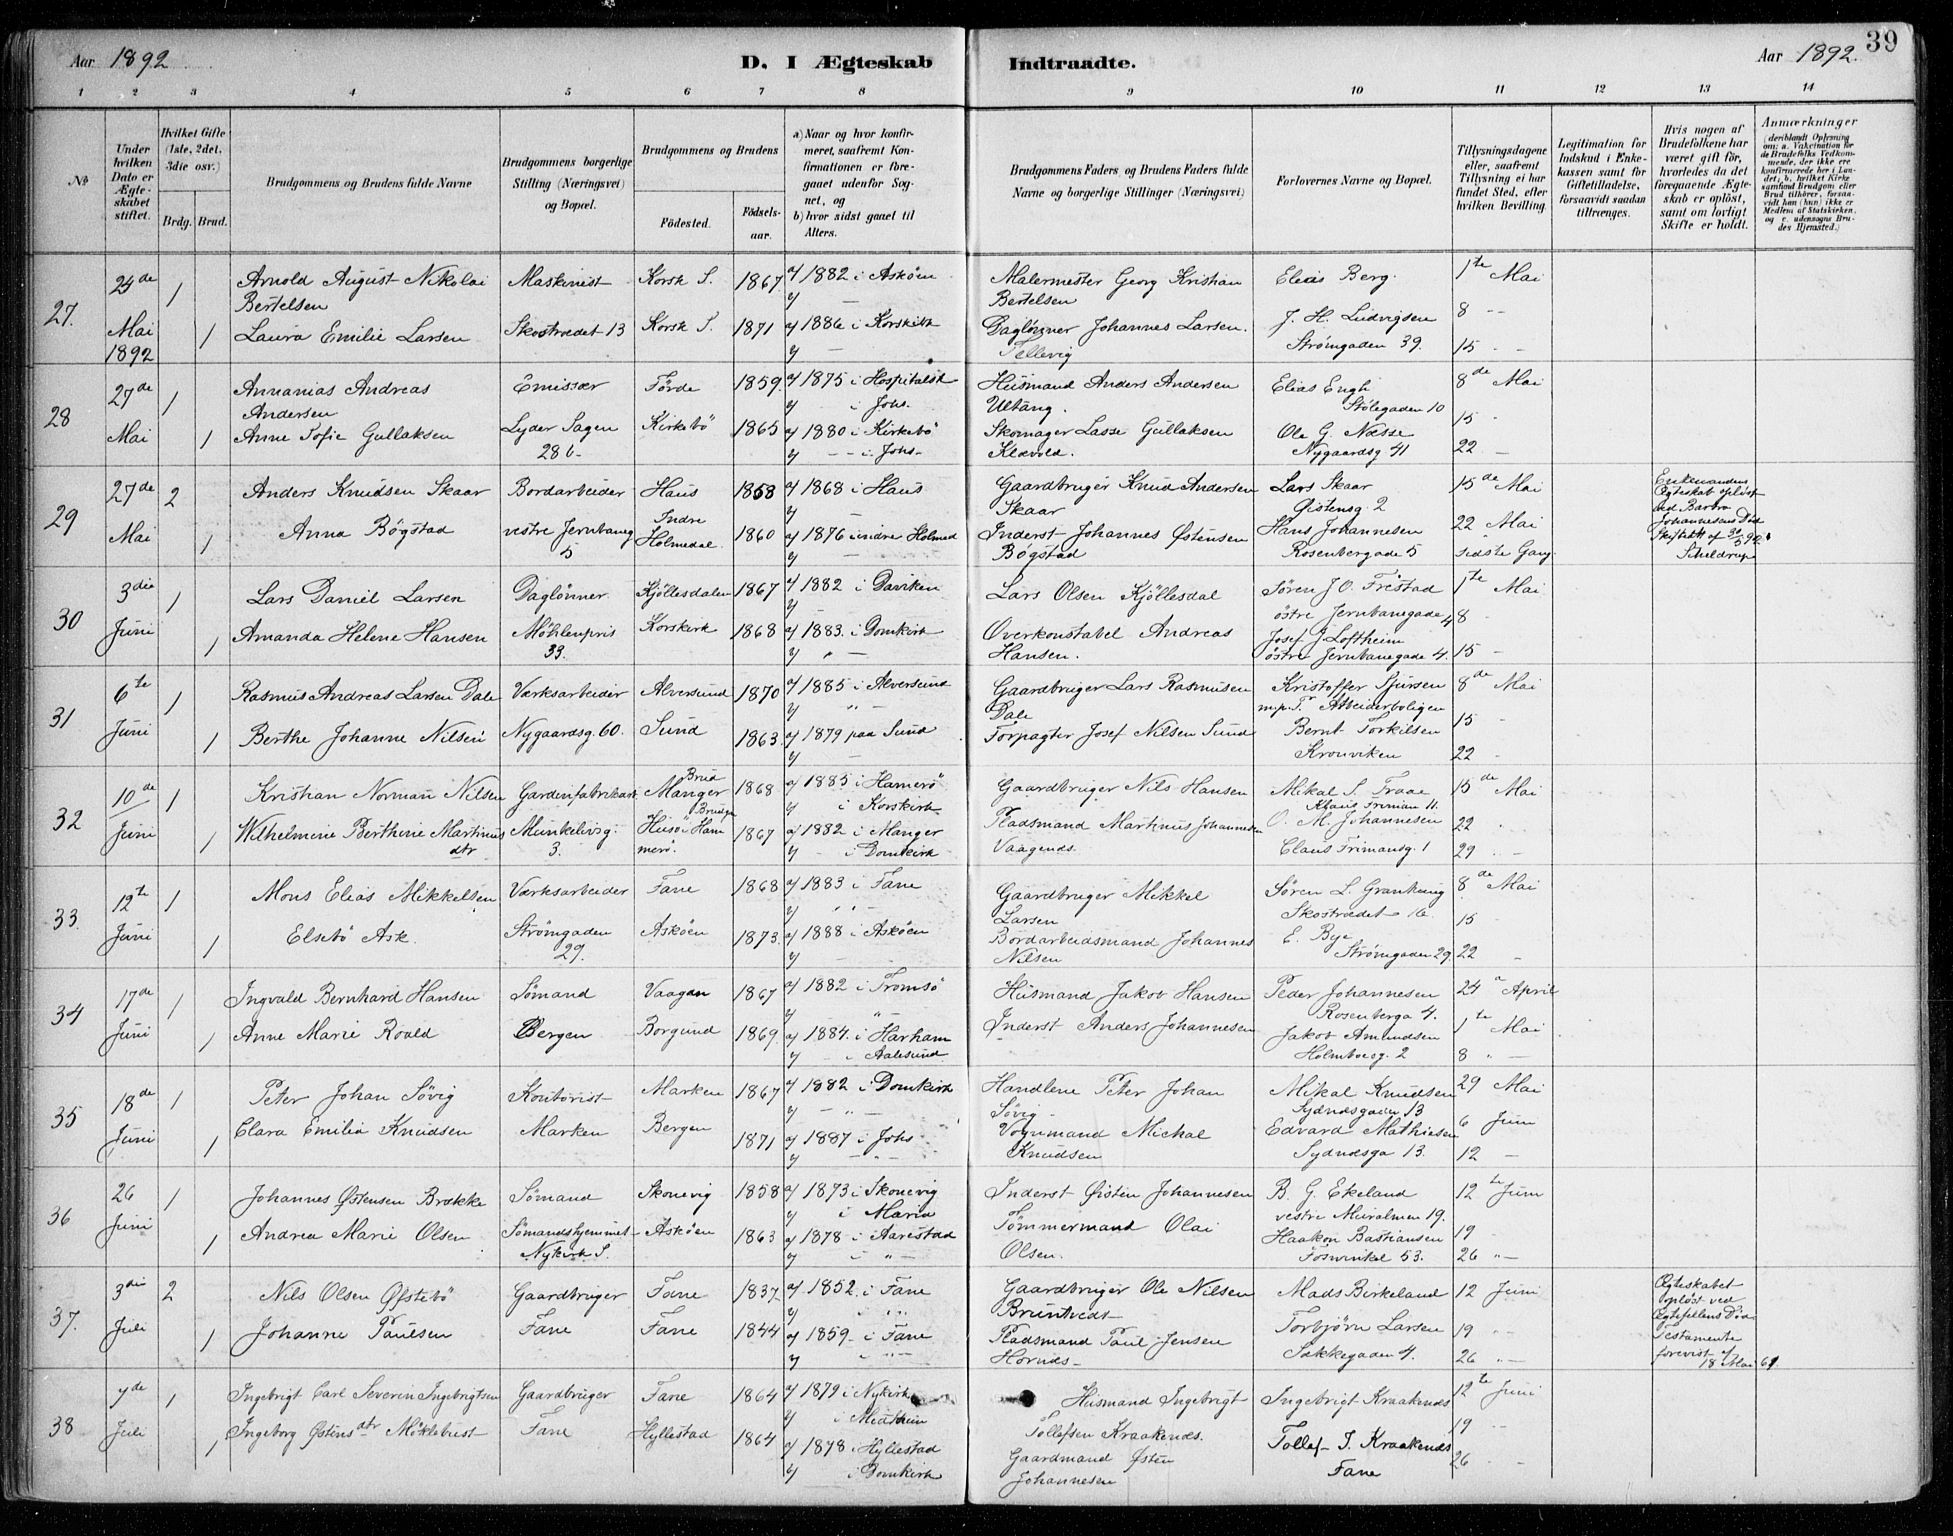 Aar 1892
D. I Ægteskab
Indtraadte.
Aar 1892.
39
1 2 3 4 5 6 7 8 9 10 11 12 13 14
No
Under hvilken Dato er Ægteskabet stiftet.
Hvilket Gifte (1ste, 2det, 3die osv.)
Brdg. Brud.
Brudgommens og Brudens fulde Navne
Brudgommens borgerlige Stilling (Næringsvei) og Bopæl.
Brudgommens og Brudens
Födested.
Födselsaar.
a) Naar og hvor konfirmeret, saafremt Konfirmationen er foregaaet udenfor Sognet, og
b) hvor sidst gaaet til Alters.
Brudgommens Faders og Brudens Faders fulde Navne og borgerlige Stillinger (Næringsvei)
Forlovernes Navne og Bopæl.
Tillysningsdagene eller, saafremt Tillysning ei har fundet Sted, efter hvilken Bevilling.
Legitimation for Indskud i Enkekassen samt for Giftetilladelse, forsaavidt saadan tiltrænges.
Hvis nogen af Brudefolkene har været gift för, hvorledes da det foregaaende Ægteskab er oplöst, samt om lovligt Skifte er holdt.
Anmærkninger (deriblandt Oplysning om: a. Vakcination for de Brudefolks Vedkommende, der ikke ere konfirmerede her i Landet; b. hvilket Kirkesamfund Brudgom eller Brud tilhörer, forsaavidt han (hun) ikke er Medlem af Statskirken, og c. udensogns Brudes Hjemsted.)
27. 24de Mai 1892
1 Arnold August Nikolai Bertelsen Maskinist Korsk S. 1867 a/ 1882 i Askøen
Malermester Georg Kristian Bertelsen Elias Berg 1te Mai
1 Laura Emilie Larsen Skostrædet 13 Korsk S. 1871 a/ 1886 i Korskirk
Daglønner Johannes Larsen. Tellevig J. H. Ludvigsen Strömgaden 39. 8 15
28 27de Mai
1 Annanias Andreas Andersen Emissær Förde 1859. a/ 1875 i Hospitalsk i Johs.
Husmand Anders Andersen Ultang. Elias Engh Stölegaden 10 8de Mai 15
1 Anne Sofie Gullaksen Lyder Sagen 28 b Kirkebö 1865 a/ 1880 i Kirkebö i Johs
Skomager Lasse Gullaksen Klævold. Ole G. Næsse Nygaardsg 41 22
29 27de Mai
2 Anders Knudsen Skaar Bordarbeider Haus 1858 a/ 1868 i Haus
Gaardbruger Knud Andersen Skaar Lars Skaar Gistensg 2 15de Mai
1 Anna Bögstad vestre Jernbaneg 5 Indre Holmedal 1860 a/ 1876 i indre Holmed
Inderst Johannes Østensen Bogstad Hans Johannesen Rosenbergade 5 22 Mai sidste Gang
Enkemandens Ægteskab opløst ved Barbro Johannesens Död Skifteatt af 3/5 92 Scheldrup
30 3die Juni
1 Lars Daniel Larsen Daglönner Kjöllesdalen 1867 a/ 1882 i Daviken
Lars Olsen Kjöllesdal Søren J. O. Frestad østre Jernbanegade 4 1te Mai 8
1 Amanda Helene Hansen Möhlenpris 33. Korskirk 1868 a/ 1883. i Domkirk
Overkonstabel Andreas Hansen. Josef J. Loftheim østre Jernbanegade 4. 15
31 6te Juni
1 Rasmus Andreas Larsen Dale Værksarbeider Alversund 1870 a/ 1885 i Alversund
Gaardbruger Lars Rasmusen Dale Kristoffer Sjursen m.p.T. Arbeiderboligen 8de Mai 15
1 Berthe Johanne Nilsen Nygaardsg. 60. Sund 1863. a/ 1879 paa Sund
Forpagter Josef Nilsen Sund Bernt Torkilsen Kronviken 22
32 10de Juni
1 Kristian Norman Nilsen Gardinfabrikant Brud Manger 1868 a/ 1885 i Hamerö i Korskirk
Gaardbruger Nils Hansen Mikal S. Traae Klaus Friman 11. 15de Mai
1 Wilhelmine Berthine Martinusdtr Munkelivsg. 3. Brudgm Husö i Hammerö. 1867 a/ 1882 i Manger i Domkirk
Pladsmand Martinus Johannesen Vaagenes. O. M. Johannesen Claus Frimansg. 1 22 29
33. 12te Juni
1 Mons Elias Mikkelsen Værksarbeider Fane 1868 a/ 1883 i Fane
Gaardbruger Mikkel Larsen Søren L. Skostrædet 16 8de Mai 15
1 Elsebö Ask. Strömgaden 29. Askøen 1873. a/ 1888 i Askøen
Bordarbeidsmand Johannes Nilsen E. Bye Strömgaden 29. 22
34 17de Juni
1 Ingvald Bernhard Hansen Sömand Vaagan 1867 a/ 1882 i Tromsö
Husmand Jakob Hansen Peder Johannesen Rosenberga 4. 24 April
1 Anne Marie Roald Bergen Borgund 1869. a/ 1884. i Harham i Aalesund
Inderst Anders Johannesen Jakob Amundsen Holmboeg. 2 1te Mai 8
35 18de Juni
1 Peter Johan Søvig Kontorist Marken 1867 a/ 1882 i Domkirk
Handlene Peter Johan Søvig Mikal Knudsen Sydnæsgaden 13 29 Mai
1 Clara Emilia Knudsen Marken Bergen 1871 a/ 1887 i Johs
Vognmand Michal Knudsen Edvard Mathiesen Sydnæsga 13. 6 Juni 12
36 26 Juni
1 Johannes Østensen Brække Sömand Skonevig 1858 a/ 1873 i Skonevig i Maria
Inderst Øisten Johannesen B. G. Ekeland vestre Muralmen 19. 12te Juni
1 Andrea Marie Olsen Sömandshjemmet Nykirk S. Askøen 1863 a/ 1878 i Aarestad
Tömmermand Olai Olsen. Haakon Bastiansen Fosvinkel 53. 19 26
37. 3die Juli
2 Nils Olsen Øfstebö Gaardbruger Fane 1837 a/ 1852. i Fane
Gaardbruger Ole Nilsen Bruntveds Mads Birkeland 12 Juni
1 Johanne Paulsen Fane Fane 1844 a/ 1859. i Fane
Pladsmand Paul Jensen Hornæs Torbjörn Larsen Sækkegaden 4. 19 26
Ægteskabet oplöst ved Ægtefellens Död Testamente forevist af 18 Mai 61
38 7de Juli
1 Ingebrigt Carl Severin Ingebrigtsen Gaardbruger Fane 1864 a/ 1879 i Nykirk i Midthun
Husmand Ingebrigt Tollefsen Kraakenæs. Ingebrigt Kraakenæs 12te Juni 19
1 Ingeborg Østensdtr Möklebust Fane Hyllestad 1864 a/ 1878 i Hyllestad i Domkirk
Gaardmand Østen Johannesen Tollef J. Kraakenæs Fane 26